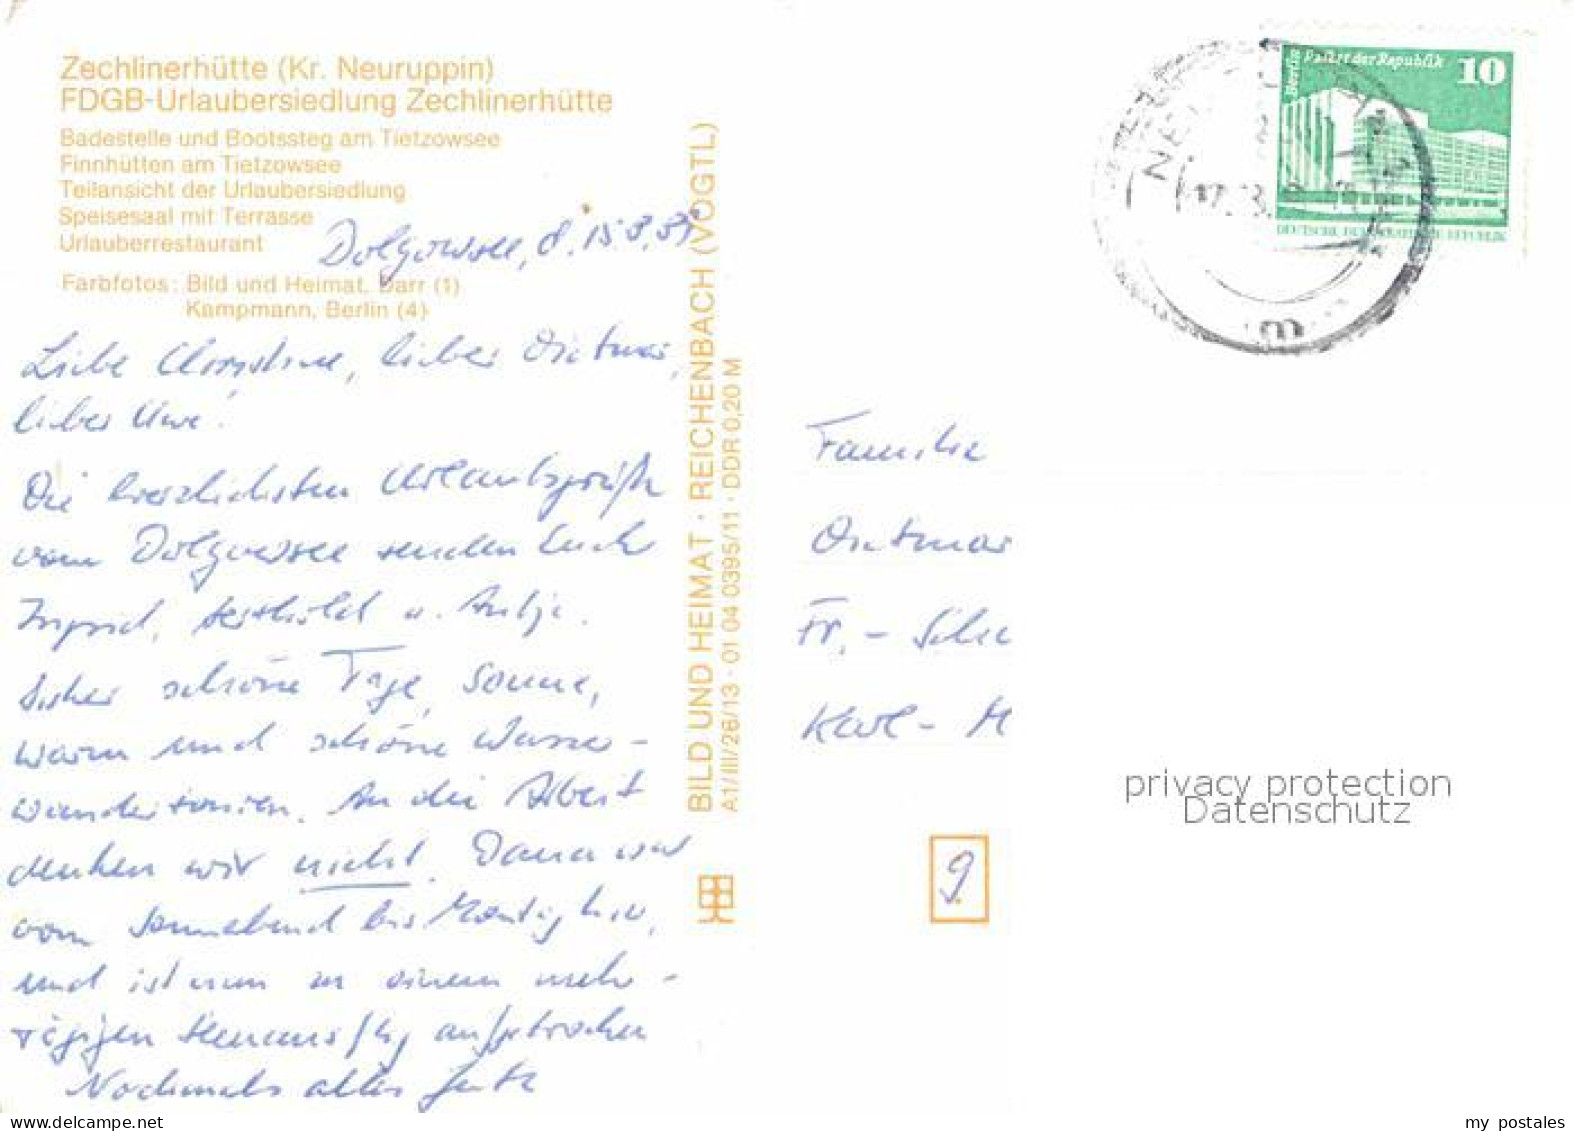 Zechlinerhütte (Kr. Neuruppin)
FDGB-Urlaubersiedlung Zechlinerhütte
Badestelle und Bootssteg am Tietzowsee
Finnhütten am Tietzowsee
Teilansicht der Urlaubersiedlung
Speisesaal mit Terrasse
Urlauberrestaurant
Farbfotos: Bild und Heimat, Darr (1)
Kampmann, Berlin (4)
Dolgowsee, d. 15.8.
Liebe Christine, lieber Dietmar,
lieber Uwe!
Die herzlichsten Urlaubsgrüße
vom Dolgowsee senden Euch
Ingrid, u. Antje.
Bisher schöne Tage, Sonne,
warm und schöne Wasser-
wandertouren. An die Arbeit
denken wir nicht. Dana war
vom Sonnabend bis Montag hier,
und ist nun zu einem mehr-
tägigen aufgebrochen
Nochmals alles Gute
BILD UND HEIMAT · REICHENBACH (VOGTL)
A1/III/26/13 · 01 04 0395/11 · DDR 0,20 M
Berlin Palast der Republik 10
DEUTSCHE DEMOKRATISCHE REPUBLIK
m
Familie
Dietmar
Fr.- Sche
Karl- M
privacy protection
Datenschutz
9.
www.delcampe.net
my postales